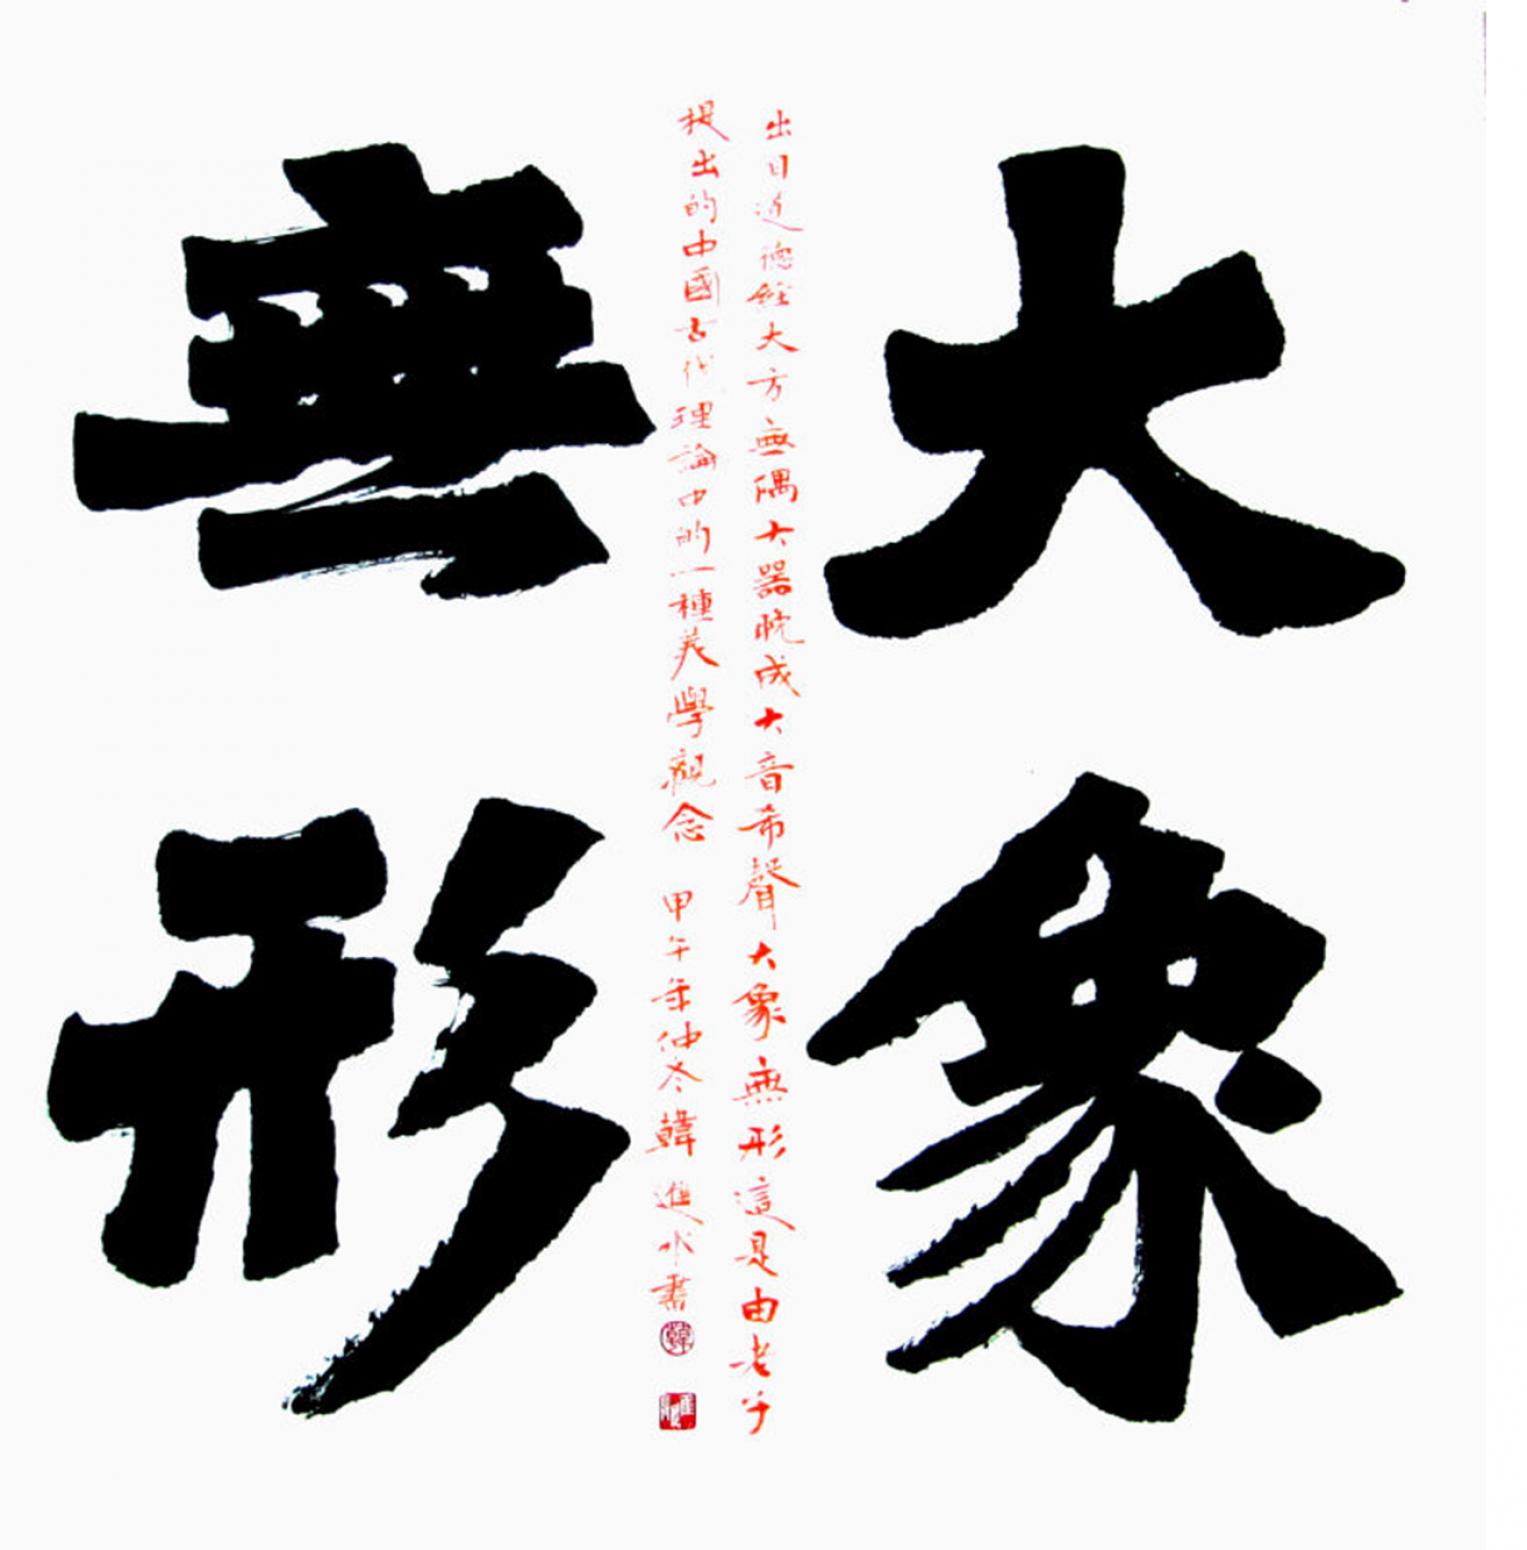 大象
無形
出自道德經大方無隅大器晚成大音希聲大象無形這是由老子
提出的中國古代理論中的一種美學觀念 甲午年仲冬韓進水書
韓